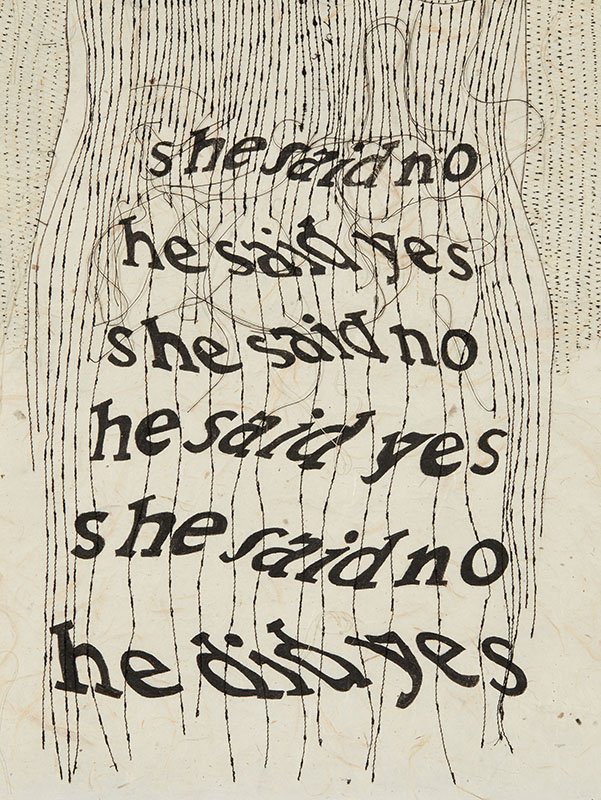 she said no
he said yes
she said no
he said yes
she said no
he did yes